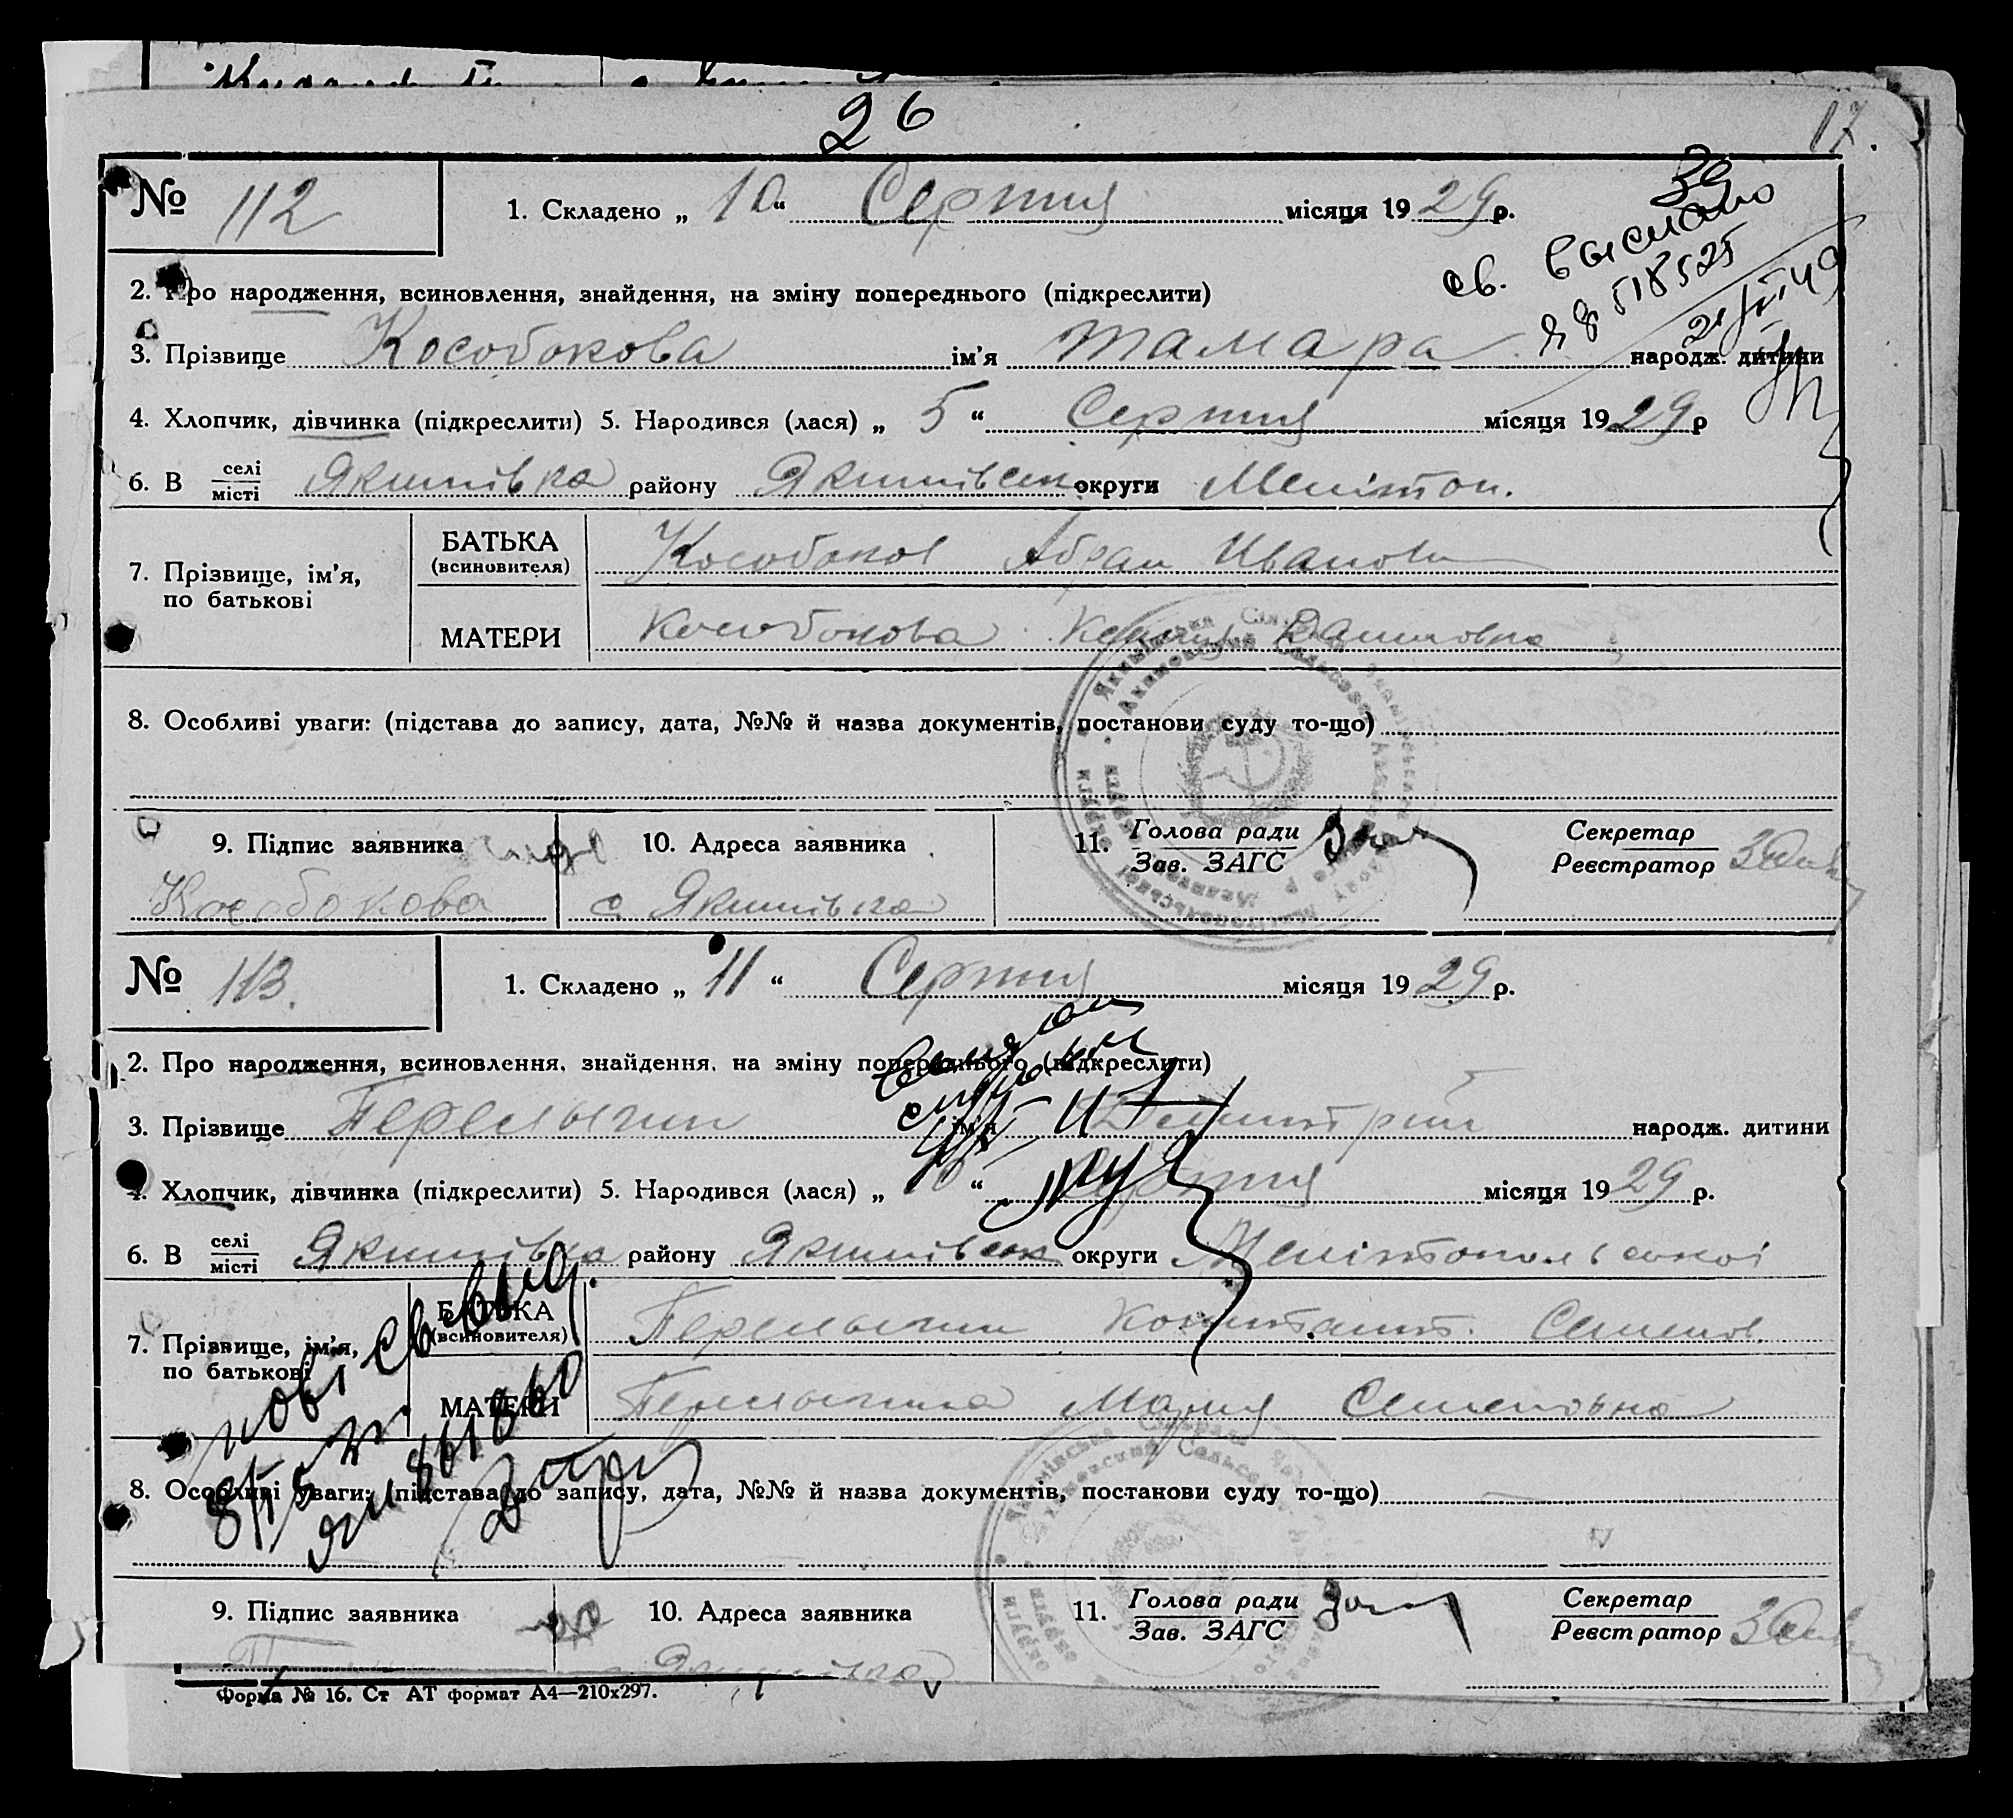 26
17.
№ 112
1. Складено „ 10 “ Серпня місяця 1929 р.
св. выслано
ЯЯ 518525
2. Про народження, всиновлення, знайдення, на зміну попереднього (підкреслити)
3. Прізвище Кособокова ім'я Тамара народж. дитини
4. Хлопчик, дівчинка (підкреслити) 5. Народився (лася) „ 5 “ Серпня місяця 1929 р
6. В селі місті Якимівка району Якимівськ. округи Мелітоп.
7. Прізвище, ім'я, по батькові
БАТЬКА (всиновителя) Кособоков Абрам Иванови
МАТЕРИ Кособокова
8. Особливі уваги: (підстава до запису, дата, №№ й назва документів, постанови суду то-що)
9. Підпис заявника 10. Адреса заявника 11. Голова ради Зав. ЗАГС Секретар Реєстратор
Кособокова с. Якимівка
№ 113.
1. Складено „ 11 “ Серпня місяця 1929 р.
2. Про народження, всиновлення, знайдення, на зміну попереднього (підкреслити)
3. Прізвище Перелыгин ім'я Демитрий народж. дитини
4. Хлопчик, дівчинка (підкреслити) 5. Народився (лася) „ “ Серпня місяця 1929 р.
6. В селі місті Якимівка району Якимівськ округи Мелітопольської
7. Прізвище, ім'я, по батькові
БАТЬКА (всиновителя) Перелыгин Констант. Семенов.
МАТЕРИ Перелыгина Мария Семеновна
8. Особливі уваги: (підстава до запису, дата, №№ й назва документів, постанови суду то-що)
9. Підпис заявника 10. Адреса заявника 11. Голова ради Зав. ЗАГС Секретар Реєстратор
Якимівка
Форма № 16. Ст АТ формат А4—210х297.